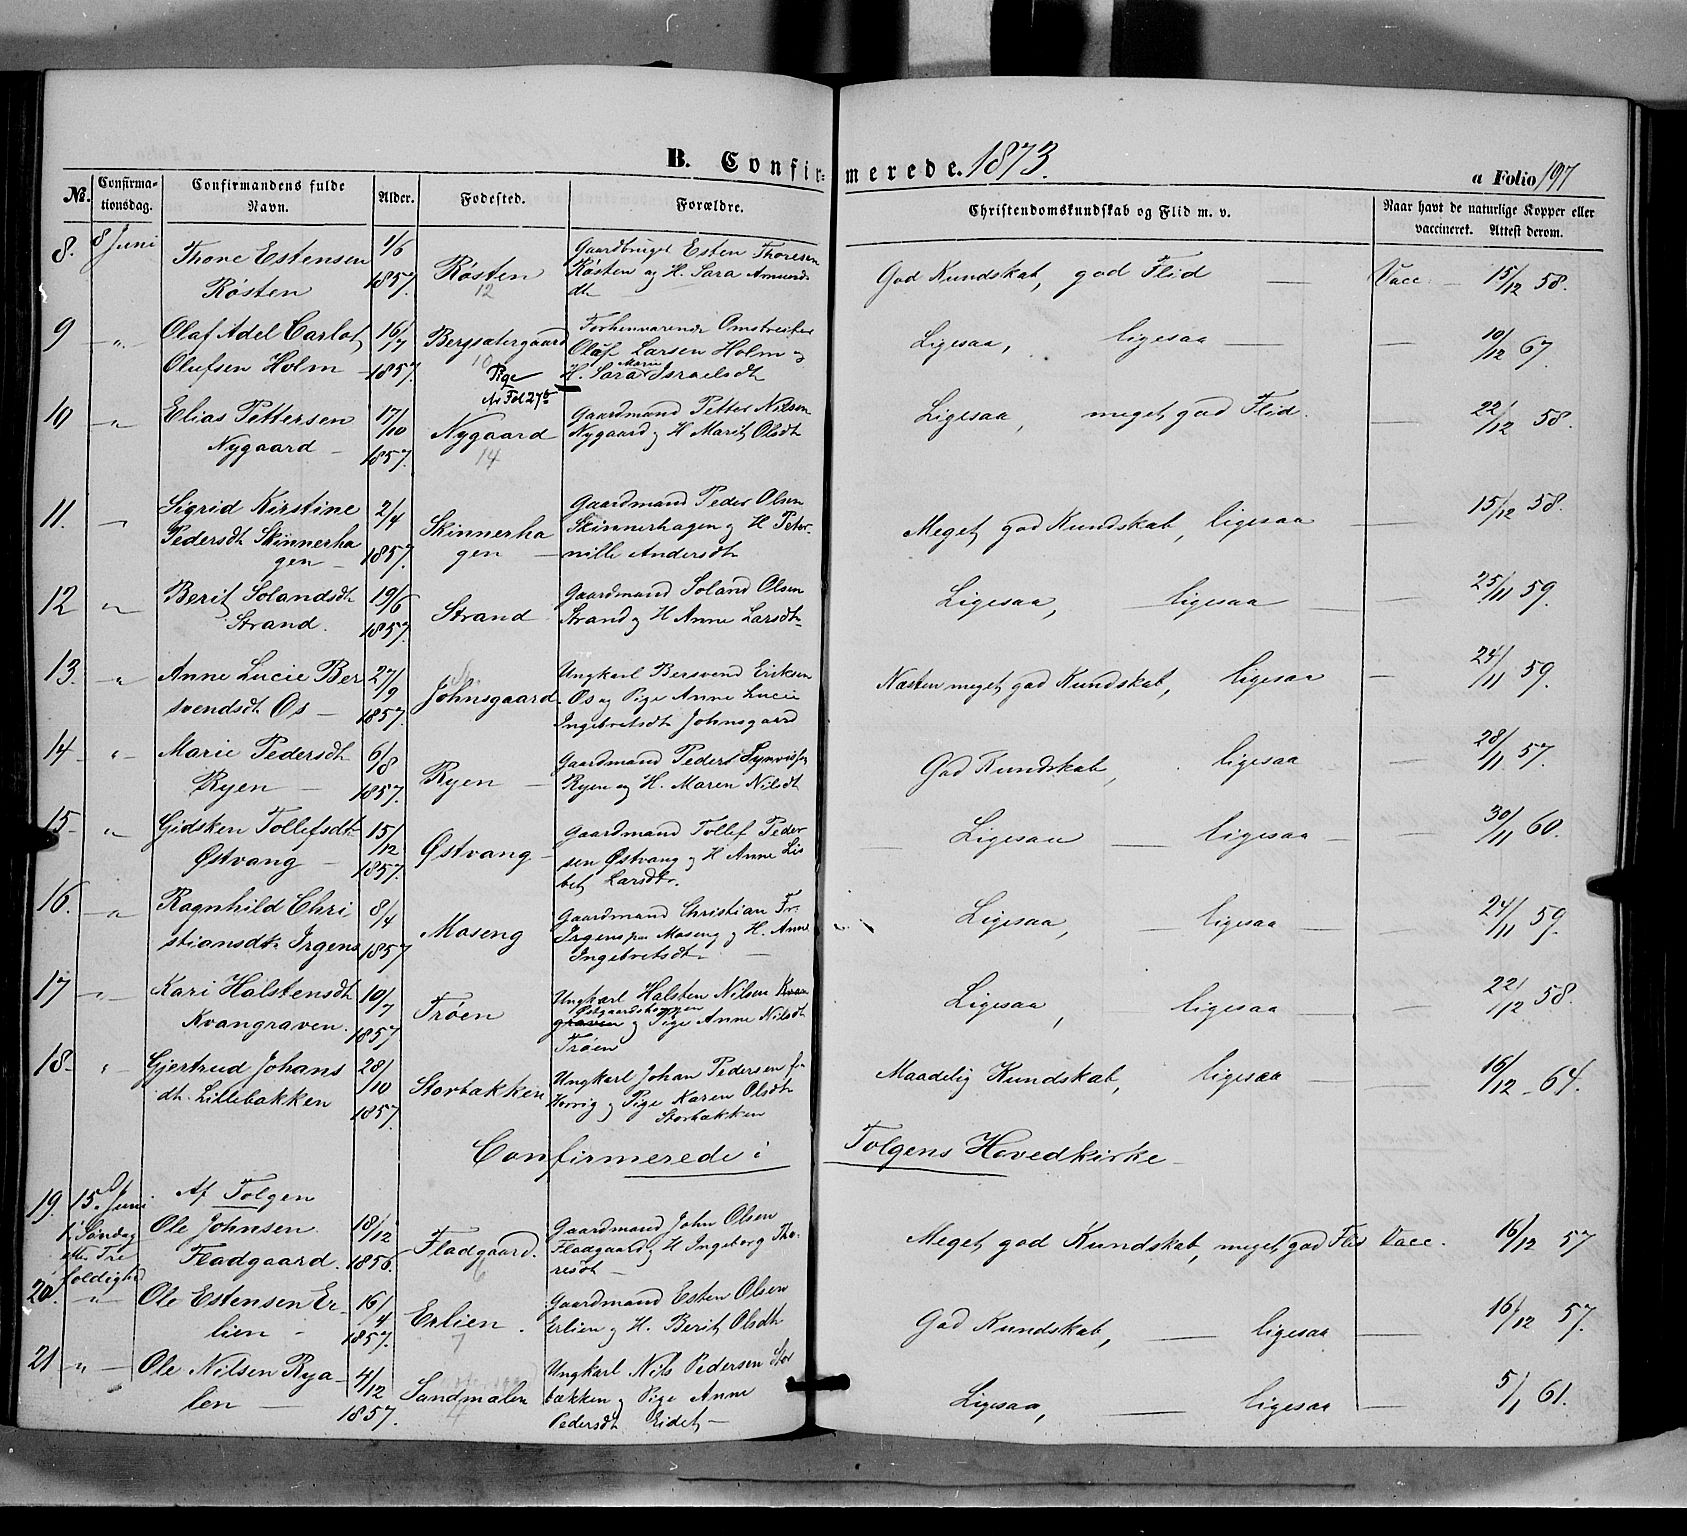 B. Confirmerede. 1873.
a Folio 197
No. Confirmationsdag. Confirmandens fulde Navn. Alder. Fødested. Forældre. Christendomskundskab og Flid m. v. Naar havt de naturlige Kopper eller vaccineret. Attest derom.
8. 8 Juni Thore Estensen 1/6 Gaardbruger Esten Thoresen
Røsten 1857. Røsten 12 Røsten og H. Sara Amunds
dt God Kundskab, god Flid — Vacc. 15/12 58.
9 — „ — Olaf Adel Carlot 16/7 Bergsætergaard Forhenværende Omstreifer
Olufsen Holm — 1857. 10 Olaf Larsen Holm og
Pige H. Sara Marie Israelsdt Ligesaa, ligesaa — — 10/12 67.
No Fol 27b
10 „ Elias Pettersen 17/10 Gaardmand Petter Nilsen
Nygaard — 1857. Nygaard 14 Nygaard og H Marit Olsdt Ligesaa, meget god Flid. — 22/12 58.
11. — Sigrid Kirstine 2/4 Gaardmand Peder Olsen
Pedersdt Skinnerha 1857. Skinnerha Skinnerhagen og H Peter-
gen — gen — nille Andersdt Meget god Kundskab, ligesaa — 15/12 58.
12 „ Berit Solandsdt 19/6 Gaardmand Soland Olsen
Strand. 1857. Strand Strand og H Anne Larsdt Ligesaa, ligesaa — — 25/11 59.
13. „ Anne Lucie Ber 27/9 Ungkarl Bersvend Eriksen
svendsdt Os — 1857. Johnsgaard Os og Pige Anne Lucie
Ingebretsdt Johnsgaard Næsten meget god Kundskab, ligesaa — 24/11 59.
14 — „ — Marie Pedersdt 6/8 Gaardmand Peder
Ryen — 1857. Ryen — Ryen og H. Maren Nilsdt God Kundskab, ligesaa — — 28/11 57.
15 — „ Gidsken Tollefsdt 15/12 Gaardmand Tollef Peder
Østvang — 1857. Østvang — sen Østvang og H Anne Lis
bet Larsdtr. Ligesaa — ligesaa — — 30/11 60.
16. — „ Ragnhild Chri 8/4 Gaardmand Christian Fr.
stiansdtr Irgens 1857 Moseng Irgens paa Moseng og H. Anne
Ingebretsdt — Ligesaa, — ligesaa — 24/11 59.
17 — „ — Kari Halstensdt 10/7 Ungkarl Halsten Nilsen Kvan
Kvangraven. 1857 Trøen Østgaardshoppen
graven og Pige Anne Nilsdt
Trøen Ligesaa, ligesaa — 22/12 58.
18 — „ — Gjertrud Johans 28/10 Ungkarl Johan Pedersen
dt. Lillebakken 1857. Storbakken og Pige Karen Olsdtr
Storbakken Maadelig Kundskab, ligesaa — — 16/12 64.
Confirmerede i Tolgens Hovedkirke
19. 15. Juni Af Tolgen
1' Søndag Ole Johnsen. 18/12 Gaardmand John Olsen
efter Tre Fladgaard. 1856. Fladgaard. 6 Fladgaard og H Ingeborg Tho-
foldighed resdt — Meget god Kundskab, meget god Flid Vacc. 16/12 57
20. — „ — Ole Estensen Er- 16/4 Gaardmand Esten Olsen
lien — 1857. Erlien. 7 Erlien og H. Berit Olsdtr God Kundskab, — ligesaa — 16/12 57.
21 — „ — Ole Nilsen Rya- 4/12 Ungkarl Nils Pedersen Stor
len — 1857. Sandmalen 4 bakken og Pige Anne
Pedersdt Eidet — Ligesaa, — ligesaa — 5/1 61.